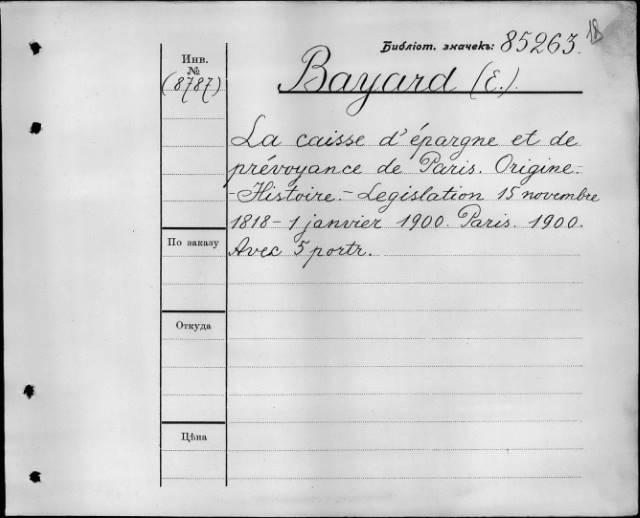 18
Библіот. значекъ: 85263.
Инв.
№
(8787)
Bayard (E.).
La caisse d'épargne et de
prévoyance de Paris. Origine.-
-Histoire.- Legislation 15 novembre
1818 - 1 janvier 1900. Paris. 1900.
Avec 5 portr.
По заказу
Откуда
Цѣна